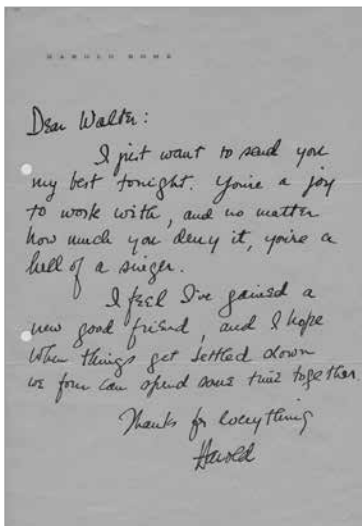 HAROLD ROME
Dear Walter:
I just want to send you
my best tonight. You're a joy
to work with, and no matter
how much you deny it, you're a
hell of a singer.
I feel I've gained a
new good friend, and I hope
when things get settled down
we four can spend some time together.
Thanks for everything
Harold